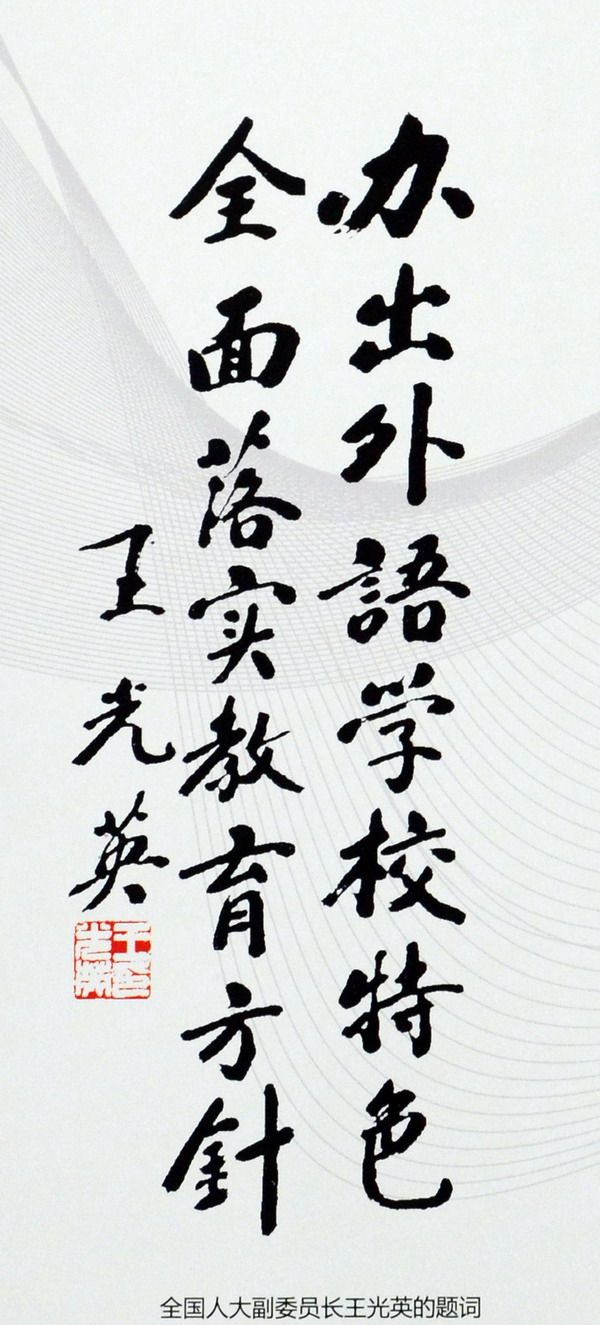 办出外語学校特色
全面落实教育方針
王光英
全国人大副委员长王光英的题词